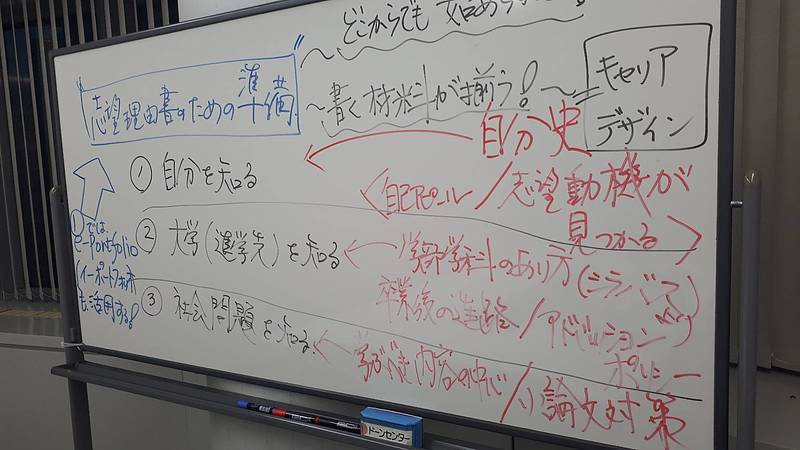 どこからでも 始められる!
志望理由書のための準備
～書く材料が揃う!～
キャリア
デザイン
自分史
① 自分を知る
自己アピール/志望動機が
見つかる
①では、
e-Portfolio
イーポートフォリオ
も活用する!
② 大学(進学先)を知る
学部学科のあり方(シラバス)
卒業後の進路/アドミッションズ
ポリシー
③ 社会問題を知る。
学ぶべき内容の中心/小論文対策
ドーンセンター